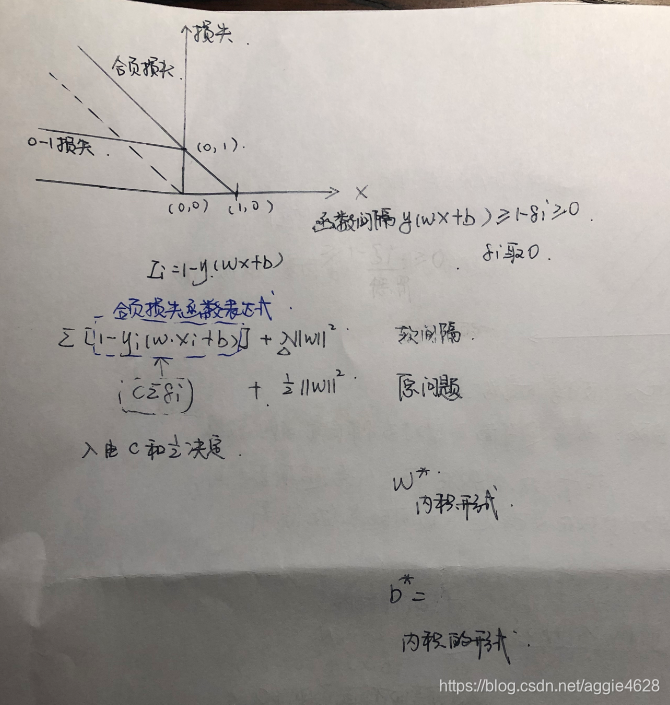 损失.
合页损失.
0-1损失.
(0,1).
(0,0) (1,0)
X
函数间隔 y(wx+b) ≥ 1-ξi ≥ 0.
ξi取0.
Ii=1-yi(wx+b)
合页损失函数表达式.
Σ [1-yi(w·xi+b)] + λ||w||². 软间隔.
(CΣξi) + ½||w||² 原问题
λ由C和½决定.
w*.
内积形式.
b*=
内积的形式.
https://blog.csdn.net/aggie4628